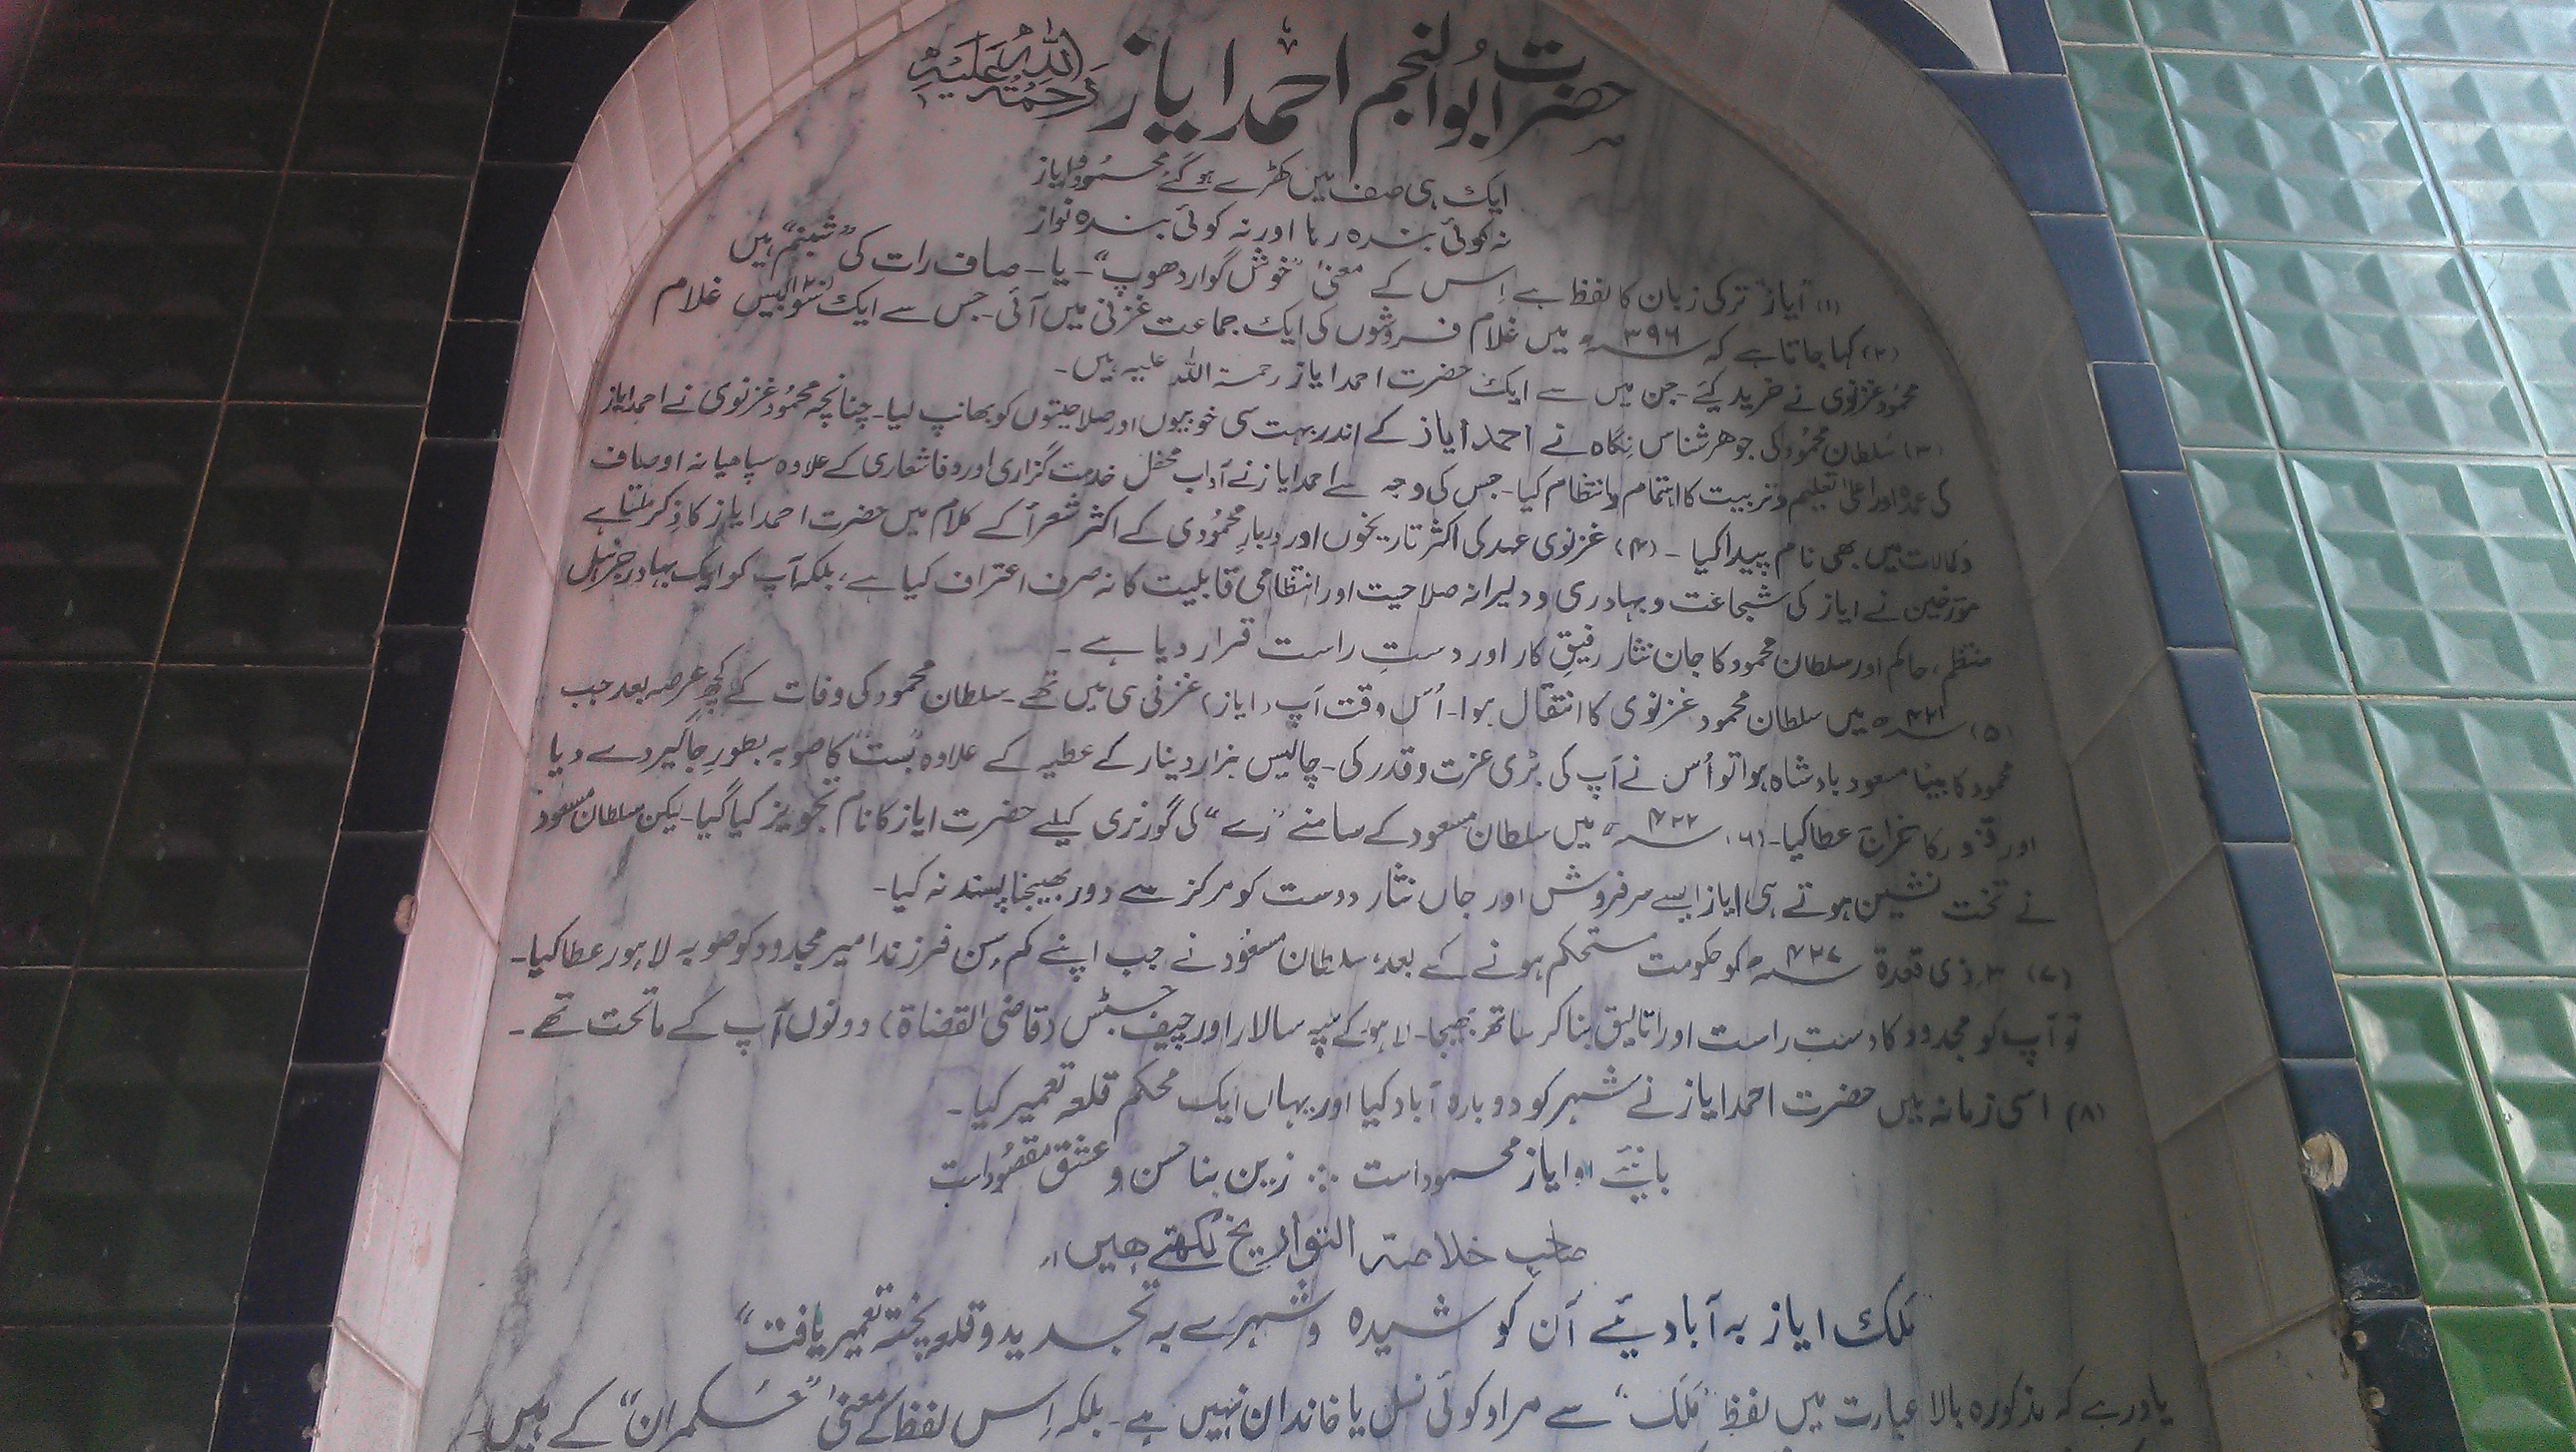 حضرت ابوالنجم احمد ایاز رحمتہ اللہ علیہ
ایک ہی صف میں کھڑے ہو گئے محمود و ایاز
نہ کوئی بندہ رہا اور نہ کوئی بندہ نواز
(۱) "ایاز" ترکی زبان کا لفظ ہے اِس کے معنی "خوش گوار دھوپ" - یا - صاف رات کی "شبنم" ہیں
(۲) کہا جاتا ہے کہ ۳۹۶ھ میں غلام فروشوں کی ایک جماعت غزنی میں آئی - جس سے ایک سو بیس غلام
محمود غزنوی نے خرید کیے - جن میں سے ایک حضرت احمد ایاز رحمتہ اللہ علیہ ہیں -
(۳) سلطان محمود کی جوھر شناس نگاہ نے احمد ایاز کے اندر بہت سی خوبیوں اور صلاحیتوں کو بھانپ لیا - چنانچہ محمود غزنوی نے احمد ایاز
کی عمدہ اور اعلیٰ تعلیم و تربیت کا اہتمام و انتظام کیا - جس کی وجہ سے احمد ایاز نے آداب محفل خدمت گزاری اور وفا شعاری کے علاوہ سپاہیانہ اوصاف
و کمالات میں بھی نام پیدا کیا - (۴) غزنوی عہد کی اکثر تاریخوں اور دربارِ محمودی کے اکثر شعرأ کے کلام میں حضرت احمد ایاز کا ذِکر ملتا ہے
مورخین نے ایاز کی شجاعت و بہادری و دلیرانہ صلاحیت اور انتظامی قابلیت کا نہ صرف اعتراف کیا ہے، بلکہ آپ کو ایک بہادر جرنیل
منتظم، حاکم اور سلطان محمود کا جان نثار رفیقِ کار اور دستِ راست قرار دیا ہے -
(۵) ۴۲۱ھ میں سلطان محمود غزنوی کا انتقال ہوا - اُس وقت آپ (ایاز) غزنی ہی میں تھے - سلطان محمود کی وفات کے کچھ عرصہ بعد جب
محمود کا بیٹا مسعود بادشاہ ہوا تو اُس نے آپ کی بڑی عزت و قدر کی - چالیس ہزار دینار کے عطیہ کے علاوہ "بُست" کا صوبہ بطورِ جاگیر دے دیا
اور کا خراج عطا کیا - (۶) ۴۲۲ھ میں سلطان مسعود کے سامنے "رے" کی گورنری کیلئے حضرت ایاز کا نام تجویز کیا گیا - لیکن سلطان مسعود
نے تخت نشین ہوتے ہی ایاز ایسے سرفروش اور جاں نثار دوست کو مرکز سے دور بھیجنا پسند نہ کیا -
(۷) ۳ ذی قعدۃ ۴۲۷ھ کو حکومت مستحکم ہونے کے بعد، سلطان مسعود نے جب اپنے کم سِن فرزند امیر مجدود کو صوبہ لاہور عطا کیا -
تو آپ کو مجدود کا دست راست اور اتالیق بنا کر ساتھ بھیجا - لاہور کے سپہ سالار اور چیف جسٹس (قاضی القضاۃ) دونوں آپ کے ماتحت تھے -
(۸) اسی زمانہ میں حضرت احمد ایاز نے شہر کو دوبارہ آباد کیا اور یہاں ایک محکم قلعہ تعمیر کیا -
بانیٔ او ایاز محمود است ∴ زین بنا حسن و عشق مقصود است
صاحب خلاصتہ التواریخ لکھتے ھیں
مَلک ایاز بہ آبادیٔے آن کوشیدہ و شہرے بہ تجدید و قلعہ پختہ تعمیر یافت"
یاد رہے کہ مذکورہ بالا عبارت میں لفظ "مَلک" سے مراد کوئی نسل یا خاندان نہیں ہے - بلکہ اِس لفظ کے معنیٰ "حکمران" کے ہیں -